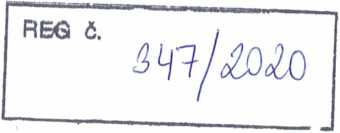 REG č.
347/2020